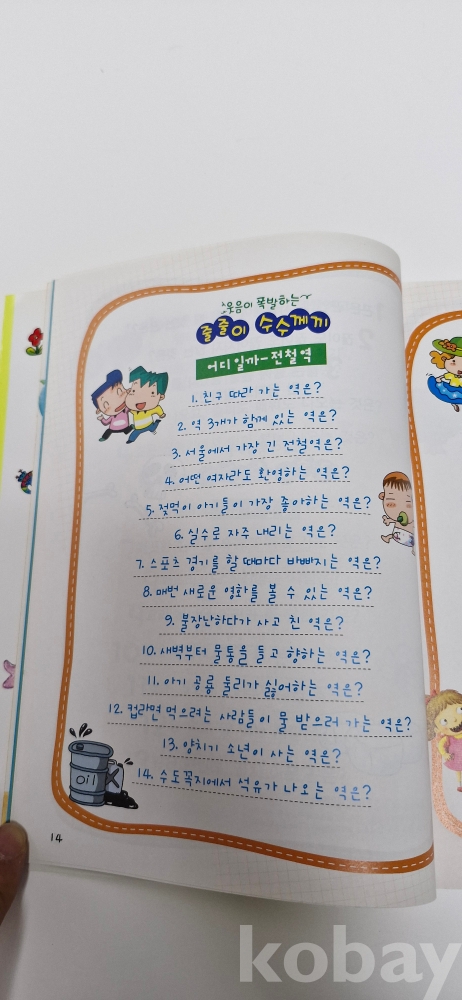 웃음이 폭발하는~
줄줄이 수수께끼
어디일까-전철역
1. 친구 따라 가는 역은?
2. 역 3개가 함께 있는 역은?
3. 서울에서 가장 긴 전철역은?
4. 어떤 여자라도 환영하는 역은?
5. 젖먹이 아기들이 가장 좋아하는 역은?
6. 실수로 자주 내리는 역은?
7. 스포츠 경기를 할 때마다 바빠지는 역은?
8. 매번 새로운 영화를 볼 수 있는 역은?
9. 불장난하다가 사고 친 역은?
10. 새벽부터 물통을 들고 향하는 역은?
11. 아기 공룡 둘리가 싫어하는 역은?
12. 컵라면 먹으려는 사람들이 물 받으러 가는 역은?
13. 양치기 소년이 사는 역은?
14. 수도꼭지에서 석유가 나오는 역은?
oil
14
kobay